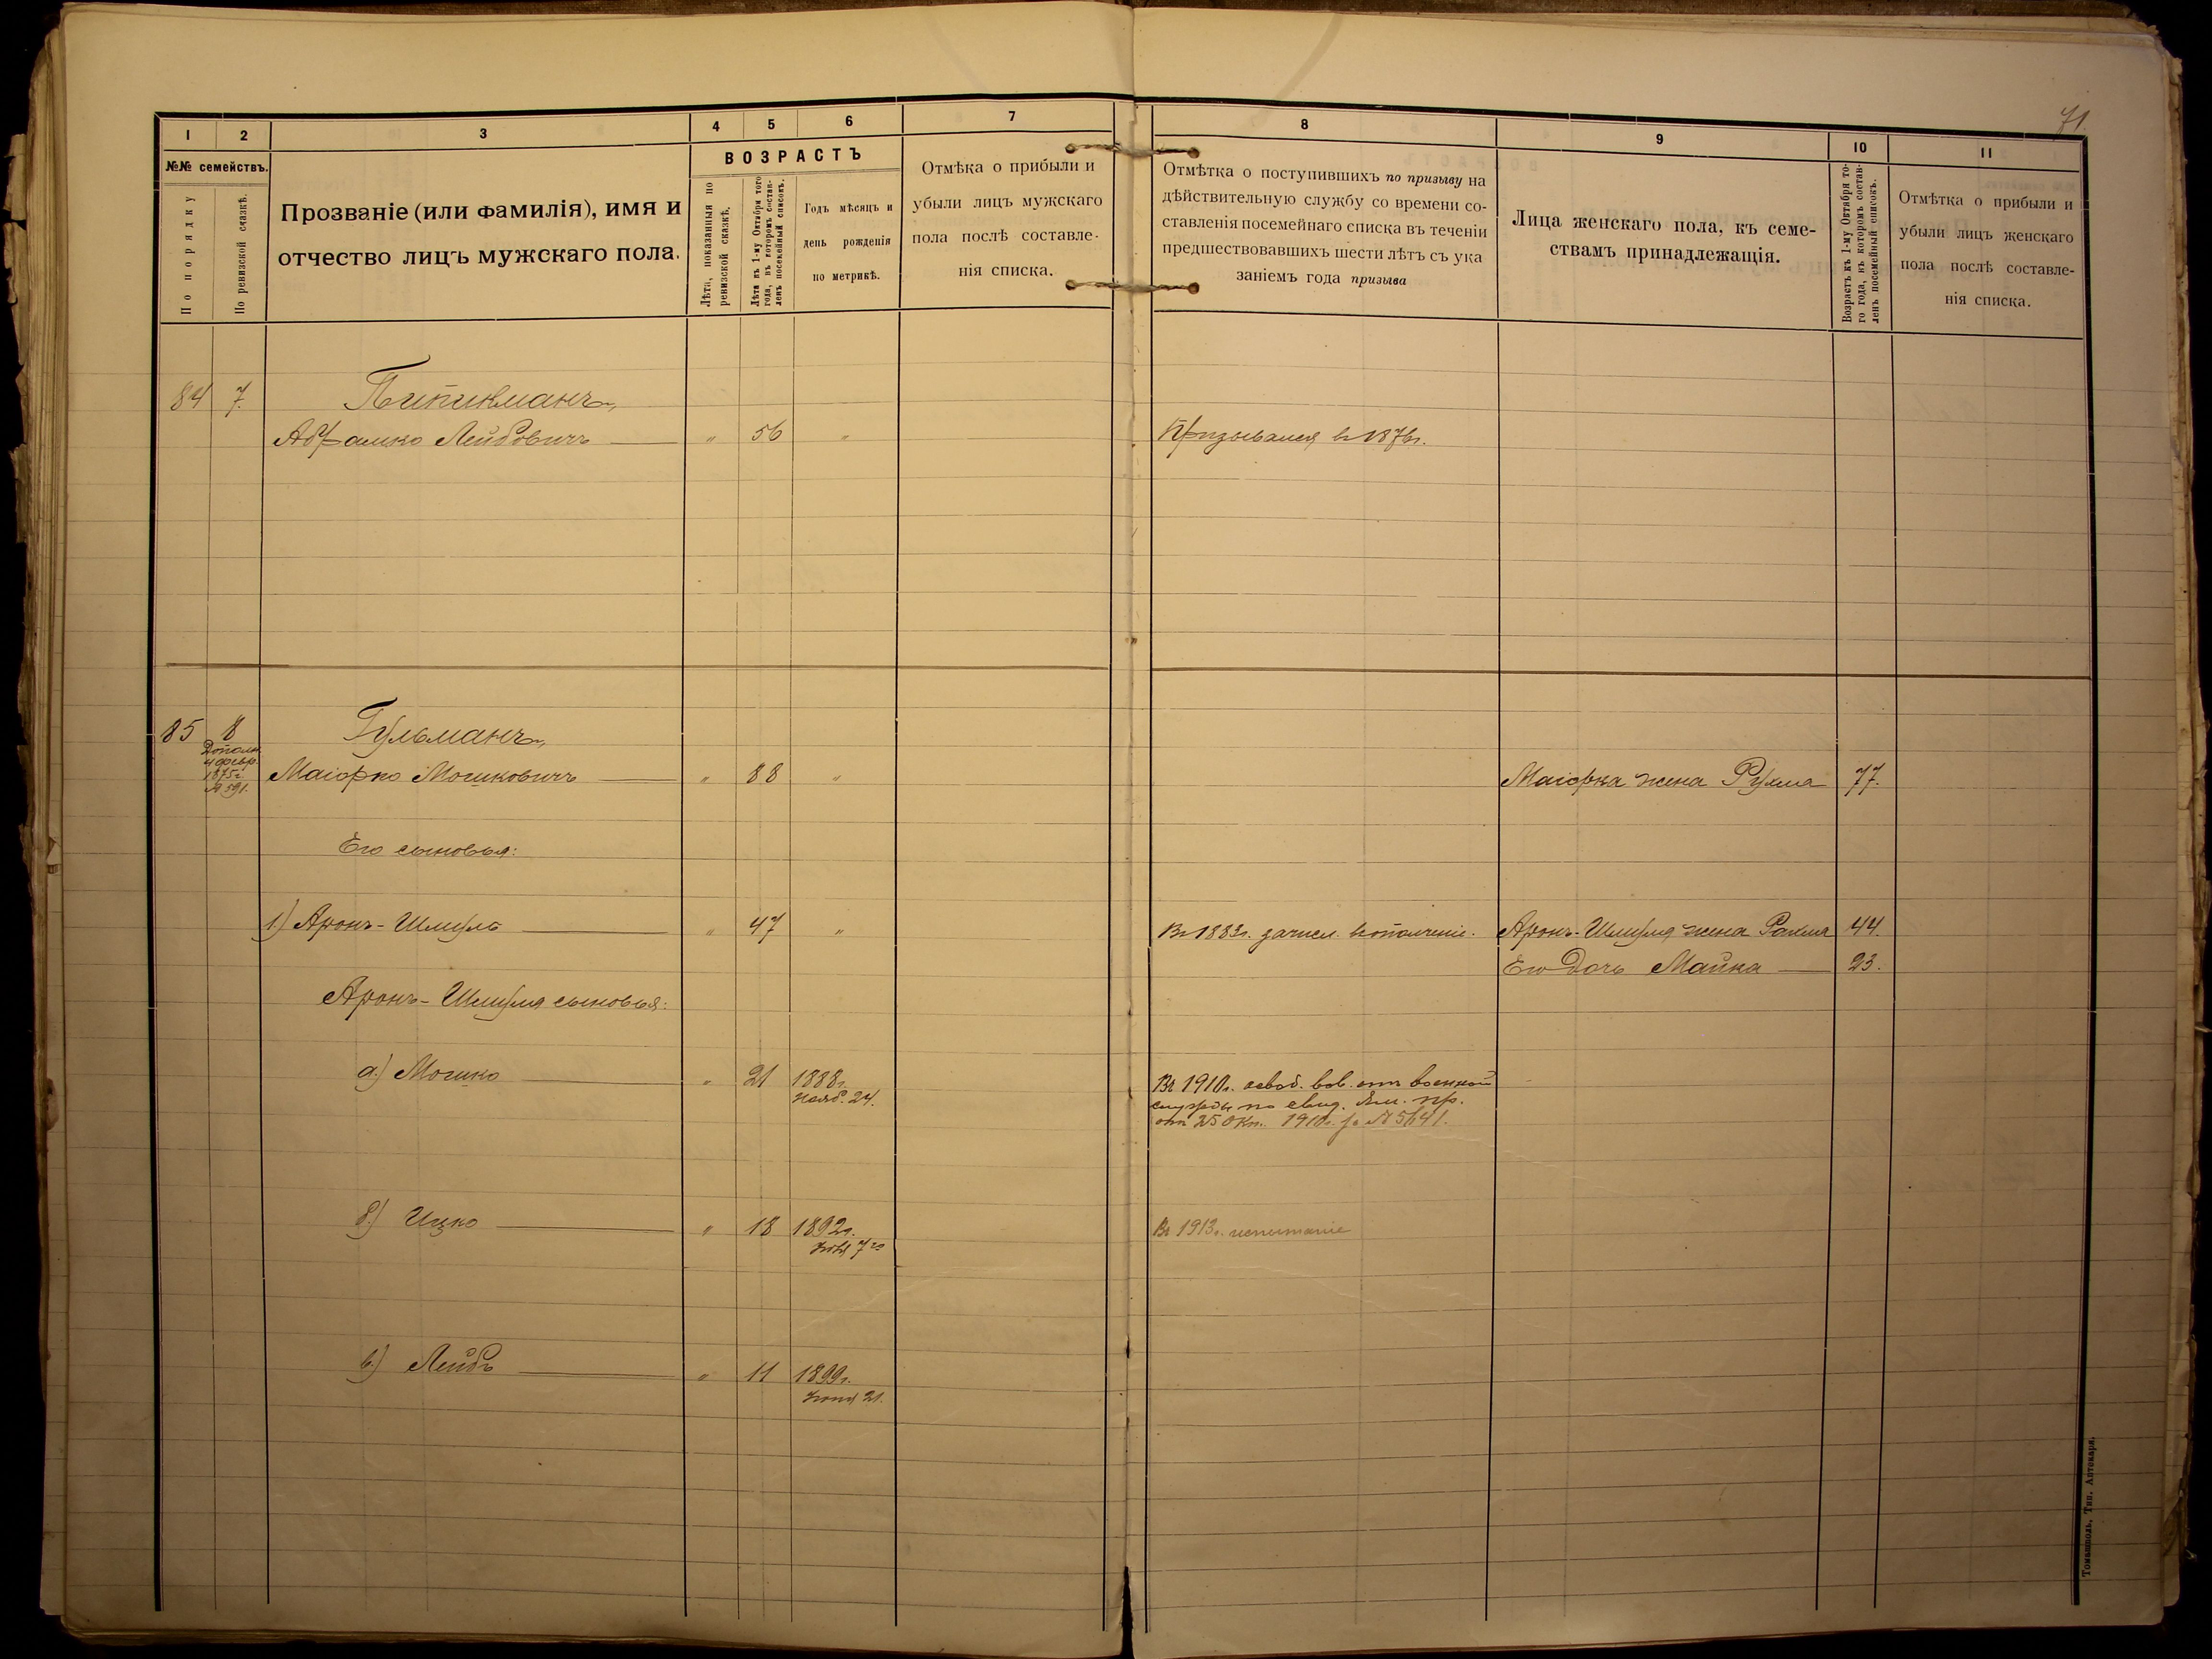 71.
1 2 3 4 5 6 7 8 9 10 11
№№ семействъ.
По порядку
По ревизской сказкѣ.
Прозваніе (или фамилія), имя и
отчество лицъ мужскаго пола.
ВОЗРАСТЪ
Лѣта, показанныя по
ревизской сказкѣ.
Лѣта къ 1-му Октября того
года, въ которомъ состав-
ленъ посемейный списокъ.
Годъ мѣсяцъ и
день рожденія
по метрикѣ.
Отмѣка о прибыли и
убыли лицъ мужскаго
пола послѣ составле-
нія списка.
Отмѣтка о поступившихъ по призыву на
дѣйствительную службу со времени со-
ставленія посемейнаго списка въ теченіи
предшествовавшихъ шести лѣтъ съ ука
заніемъ года призыва
Лица женскаго пола, къ семе-
ствамъ принадлежащія.
Возрастъ къ 1-му Октября то-
го года, въ которомъ состав-
ленъ посемейный списокъ.
Отмѣтка о прибыли и
убыли лицъ женскаго
пола послѣ составле-
нія списка.
84 7. Пипикманъ,
Абрамко Лейбовичъ — " 56 " Призывался въ 1876г.
85 8 Гульманъ,
Дополн.
4 февр.
1875г.
№ 591.
Маіорко Мошковичъ — " 88 " Маіорка жена Рухля 77.
Его сыновья:
1.) Аронъ-Шмуль — " 47 " Въ 1883г. зачисл. въ ополченіе. Аронъ-Шмуля жена Рахля 44.
Его дочь Майка — 23.
Аронъ-Шмуля сыновья:
а.) Мошко — " 21 1888г.
Нояб. 24.
Въ 1910г. освоб. вов. отъ военной
службы по свид. Ям. пр.
отъ 25 Окт. 1910г. за № 5641.
б.) Ицко — " 18 1892г.
7го
Въ 1913г. испытаніе
в.) Лейбъ — " 11 1899г.
Іюня 21.
Томашполь, Тип. Аптекаря.